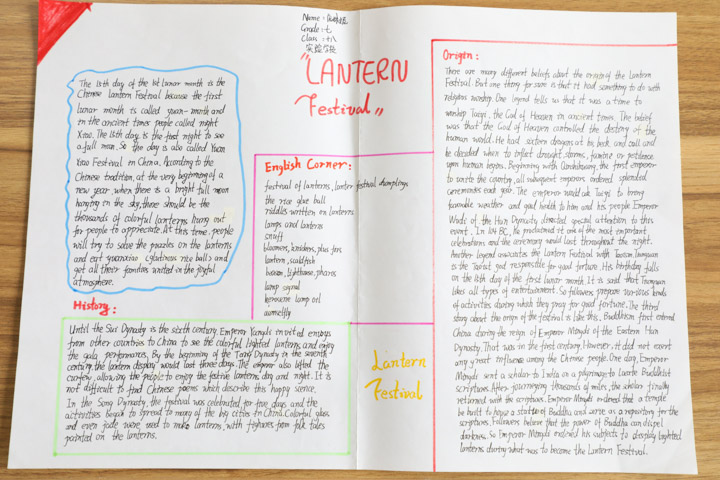 Name:
Grade: 七
Class: 十八
实验学校
"LANTERN
Festival"
The 15th day of the 1st lunar month is the
Chinese Lantern Festival because the first
lunar month is called yuan-month and
in the ancient times people called night
Xiao. The 15th day is the first night to see
a full moon. So the day is also called Yuan
Xiao Festival in China. According to the
Chinese tradition, at the very beginning of a
new year, when there is a bright full moon
hanging in the sky, there should be the
thousands of colorful lanterns hung out
for people to appreciate. At this time, people
will try to solve the puzzles on the lanterns
and eat yuanxiao (glutinous rice ball) and
get all their families united in the joyful
atmosphere.
English Corner:
festival of lanterns, lantern festival dumplings
the rice glue ball
riddles written on lanterns
lamps and lanterns
snuff
bloomers, knickers, plus fors
lantern, scaldfish
beacon, lighthouse, pharos
lamp signal
kerosene lamp oil
History:
Until the Sui Dynasty is the sixth century, Emperor Yangdi invited envoys
from other countries to China to see the colorful lighted lanterns and enjoy
the gala performances. By the beginning of the Tang Dynasty in the seventh
century, the lantern display would last three days. The emperor also lifted the
curfew, allowing the people to enjoy the festive lanterns day and night. It is
not difficult to find Chinese poems which describe this happy scence.
In the Song Dynasty, the festival was celebrated for five days and the
activities began to spread to many of the big cities in China. Colorful glass
and even jade were used to make lanterns, with figures from folk tales
painted on the lanterns.
Lantern
Festival
Origin:
There are many different beliefs about the origin of the Lantern
Festival. But one thing for sure is that it had something to do with
religious worship. One legend tells us that it was a time to
worship Taiyi, the God of Heaven in ancient times. The belief
was that the God of Heaven controlled the destiny of the
human world. He had sixteen dragons at his beck and call and
he decided when to inflict drought, storms, famine or pestilence
upon human beings. Beginning with Qinshihuang, the first emperor
to unite the country, all subsequent emperors ordered splendid
ceremonies each year. The emperor would ask Taiyi to bring
favorable weather and good health to him and his people. Emperor
Wudi of the Han Dynasty directed special attention to this
event. In 104 BC, he proclaimed it one of the most important
celebrations and the ceremony would last throughout the night.
Another legend associates the Lantern Festival with Taoism. Tianguan
is the Taoist god responsible for good fortune. His birthday falls
on the 15th day of the first lunar month. It is said that Tianguan
likes all types of entertainment. So followers prepare various kinds
of activities during which they pray for good fortune. The third
story about the origin of the festival is like this. Buddhism first entered
China during the reign of Emperor Mingdi of the Eastern Han
Dynasty. That was in the first century. However, it did not exert
any great influence among the Chinese people. One day, Emperor
Mingdi sent a scholar to India on a pilgrimage to locate Buddhist
scriptures. After journeying thousands of miles, the scholar finally
returned with the scriptures. Emperor Mingdi ordered that a temple
be built to house a statue of Buddha and serve as a repository for the
scriptures. Followers believe that the power of Buddha can dispel
darkness. So Emperor Mingdi ordered his subjects to display lighted
lanterns during what was to become the Lantern Festival.